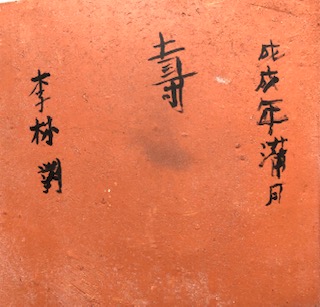 戊戌年蒲月
壽
李林劉